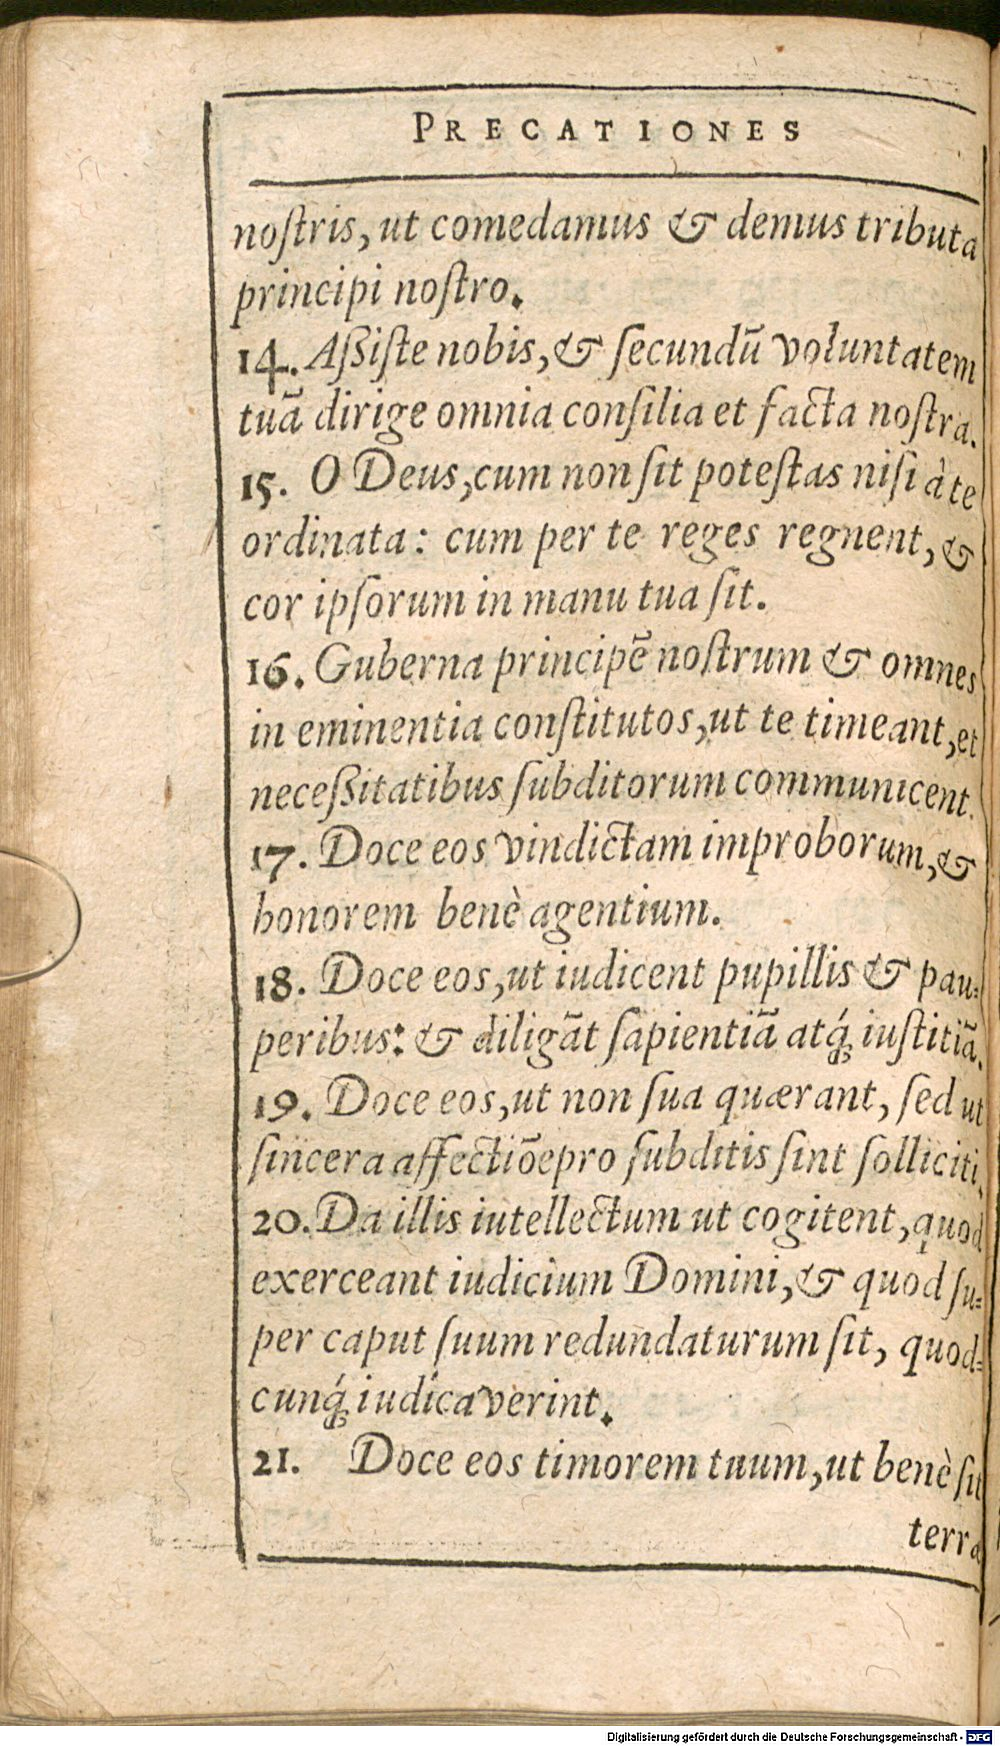 PRECATIONES
noſtris, ut comedamus & demus tributa
principi noſtro.
14. Aßiſte nobis, & ſecundū voluntatem
tuā dirige omnia conſilia et facta noſtra.
15. O Deus, cum non ſit poteſtas niſi à te
ordinata: cum per te reges regnent, &
cor ipſorum in manu tua ſit.
16. Guberna principē noſtrum & omnes
in eminentia conſtitutos, ut te timeant, et
neceßitatibus ſubditorum communicent.
17. Doce eos vindictam improborum, &
honorem benè agentium.
18. Doce eos, ut iudicent pupillis & pau=
peribus: & diligāt ſapientiā atq́; iuſtitiā.
19. Doce eos, ut non ſua quærant, ſed ut
ſincera affectiōe pro ſubditis ſint ſolliciti.
20. Da illis iutellectum ut cogitent, quod
exerceant iudicium Domini, & quod ſu=
per caput ſuum redundaturum ſit, quod=
cunq́; iudicaverint.
21. Doce eos timorem tuum, ut benè ſit
terræ
Digitalisierung gefördert durch die Deutsche Forschungsgemeinschaft - DFG